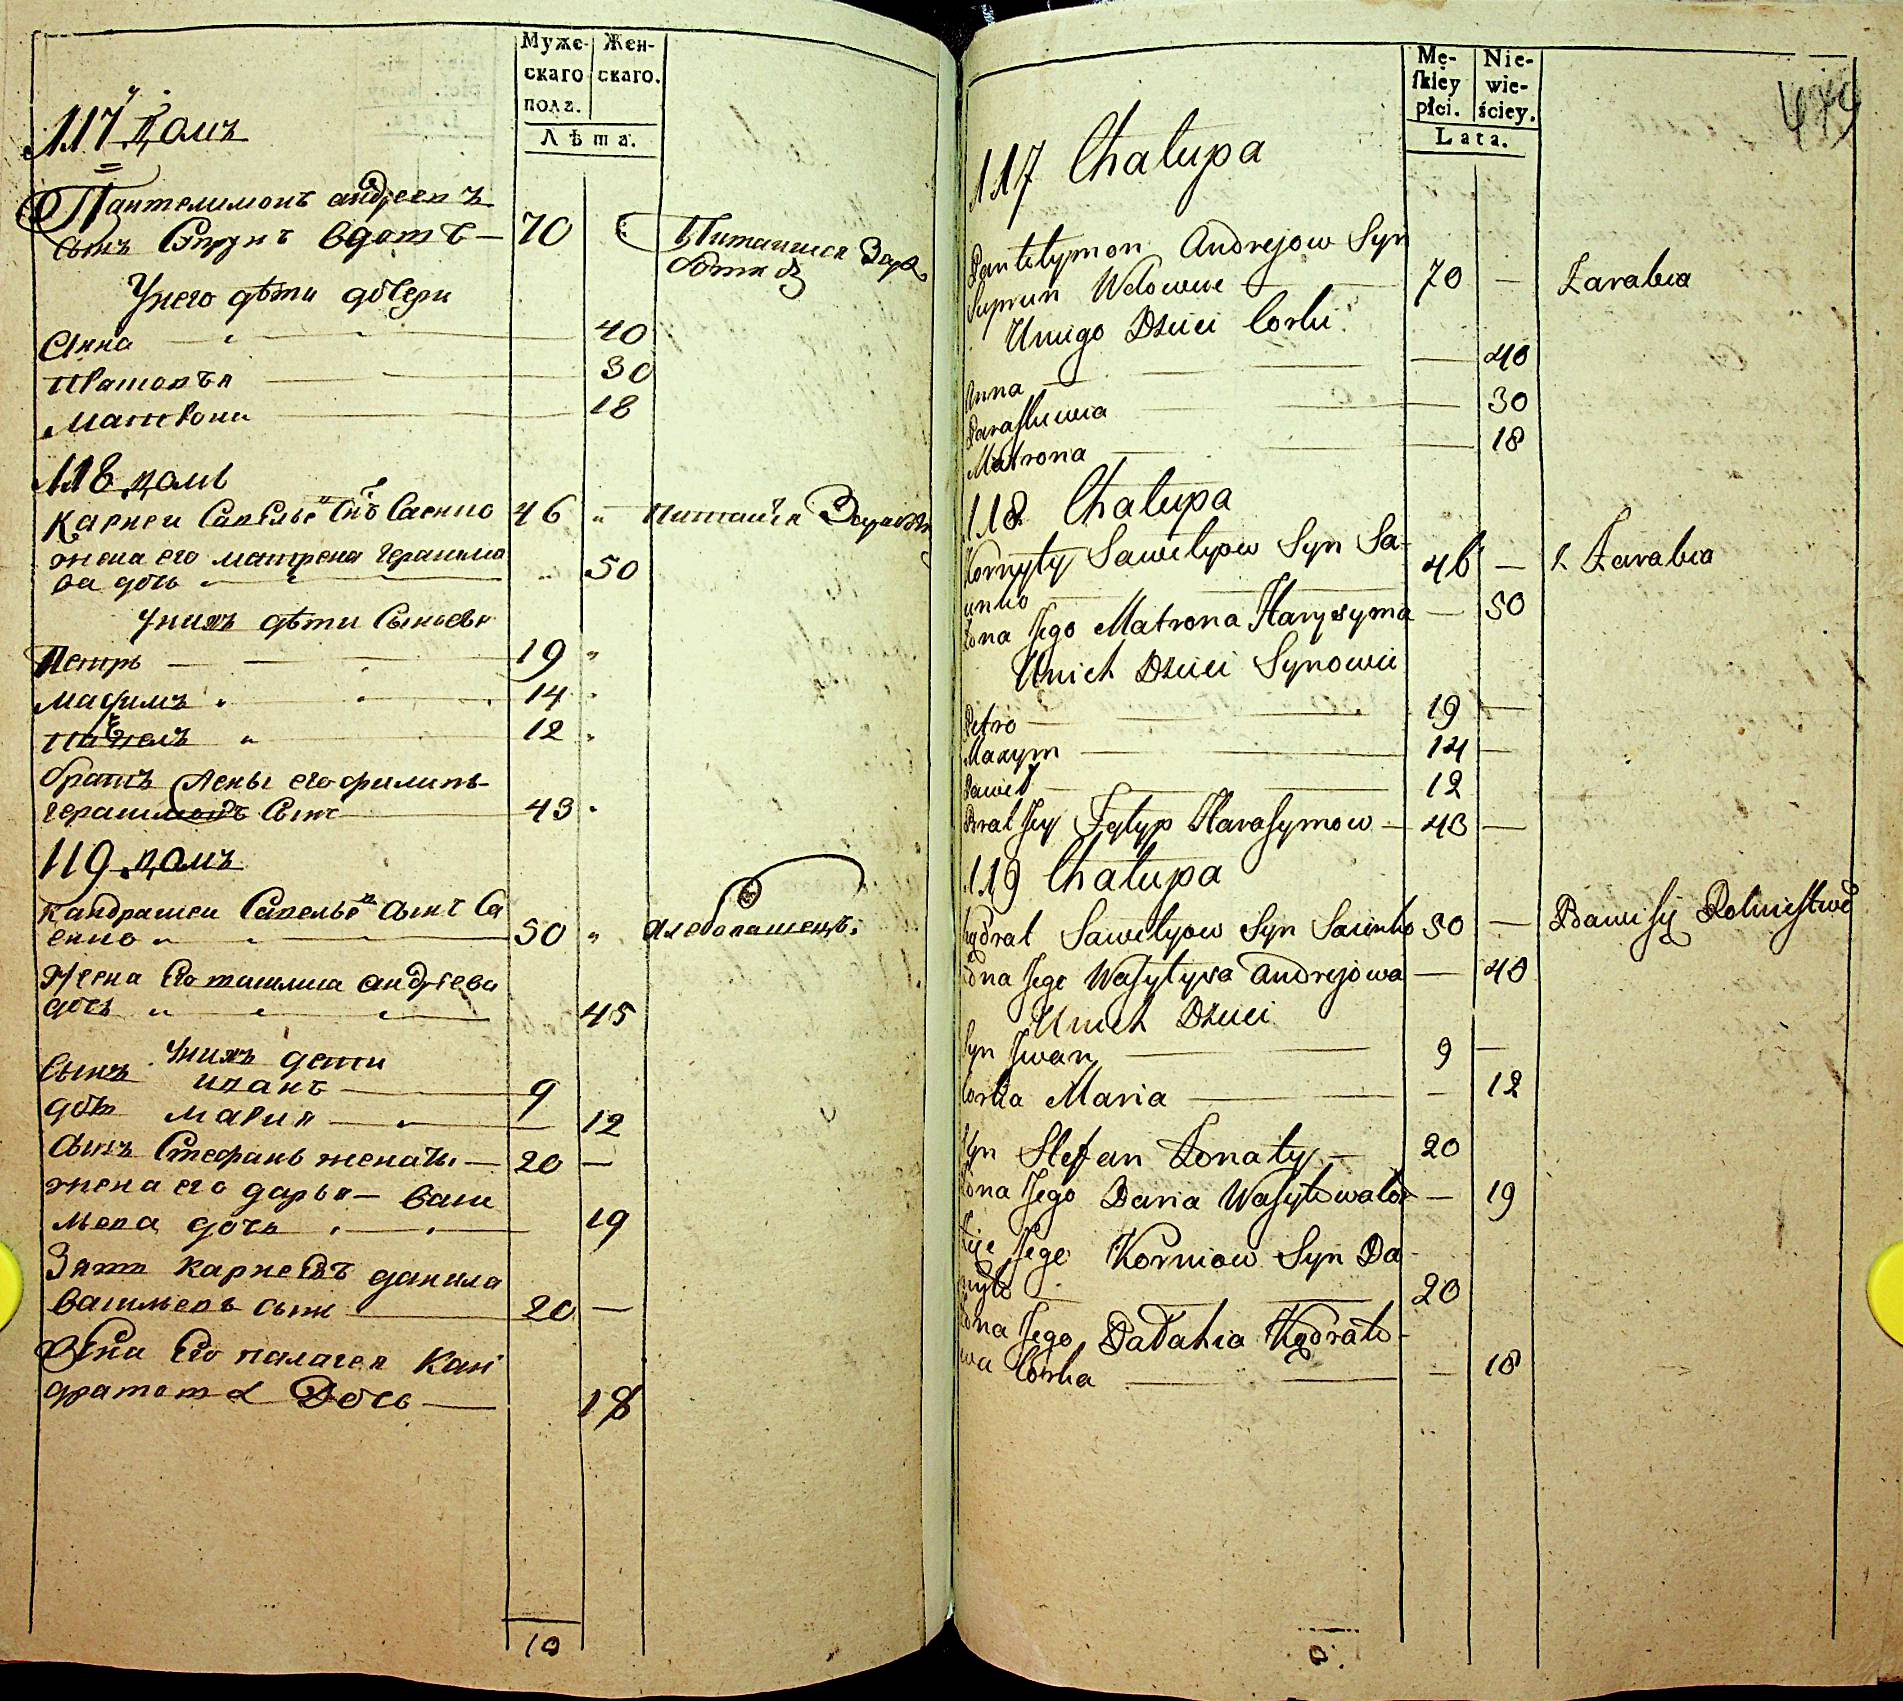 Муже- Жен-
скаго скаго.
пола.
Лѣта.
117 домъ
Пантелимонъ андреевъ
сынъ Супрунъ вдовъ — 70
Унего дѣти дочери
Анна 40
30
18
118 домъ
Карней Савельевъ Снъ Саенко 46
жена его матрена Герасимо
ва дочь 50
Унихъ дѣти Сыновья
Петръ 19
Мафимъ 14
Павелъ 12
братъ жены его филипъ
герасимовъ Сынъ 43
119 домъ
Кандратей Савельевъ сынъ Са
енко 50 хлебопашецъ.
жена Его андреева
дочь 45
Унихъ дети
Сынъ иванъ 9
дочь мария 12
Сынъ Стефанъ женатъ — 20 —
жена его дарья — васи
льева дочь 19
Зять Карнеевъ данила
васильевъ сынъ 20 —
Жена Его палагея Кан
дратова Дочь — 18
10
Mę- Nie-
skiey wie-
płci. ściey.
Lata.
479
117 Chałupa
Pantelymon Andrejow Syn
Suprun Wdowiec 70 — Zarabia
Uniego Dzieci Corki
Anna — 40
Paraskiewia 30
Matrona — 18
118 Chałupa
Kornyły Sawelyow Syn Sa-
ienko 46 — Zarabia
Zona Jego Matrona Harysyma — 50
Unich Dzieci Synowie
Petro 19 —
Maxym 14 —
Paweł 12
Brat Jey Fylyp Harasymow — 43 —
119 Chałupa
Kądrat Sawelyow Syn Saienko 50 — Bawi się Rolnictwe
Zona Jego Wasylysa Andrejowa — 40
Unich Dzieci
Syn Jwan 9 —
Corka Maria — 12
Syn Stefan Zonaty — 20
Zona Jego Daria Wasylowa — 19
Jego Korniow Syn Da-
nyło 20
Zona Jego Pałahia Kądrato-
wa Corka — 18